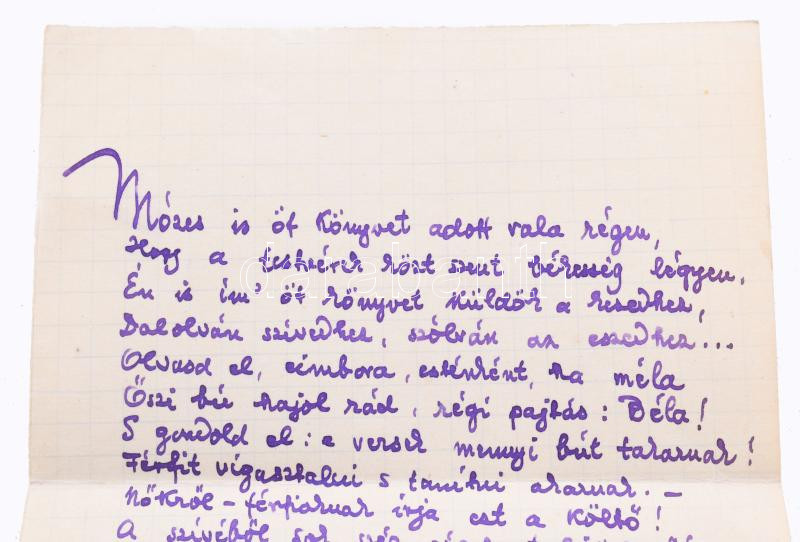 Mózes is öt könyvet adott vala régen,
Hogy a testvérek közt szent békesség légyen.
Én is ím' öt könyvet küldök a kezedhez,
Dalolván szivedhez, szólván az eszedhez...
Olvasd el, cimbora, esténként, ha méla
Őszi bú hajol rád, régi pajtás: Béla!
S gondold el: e versek mennyi bút takarnak!
Férfit vigasztalni s tanítni akarnak. —
Nőkről – férfiaknak írja ezt a költő!
A szívéből sok